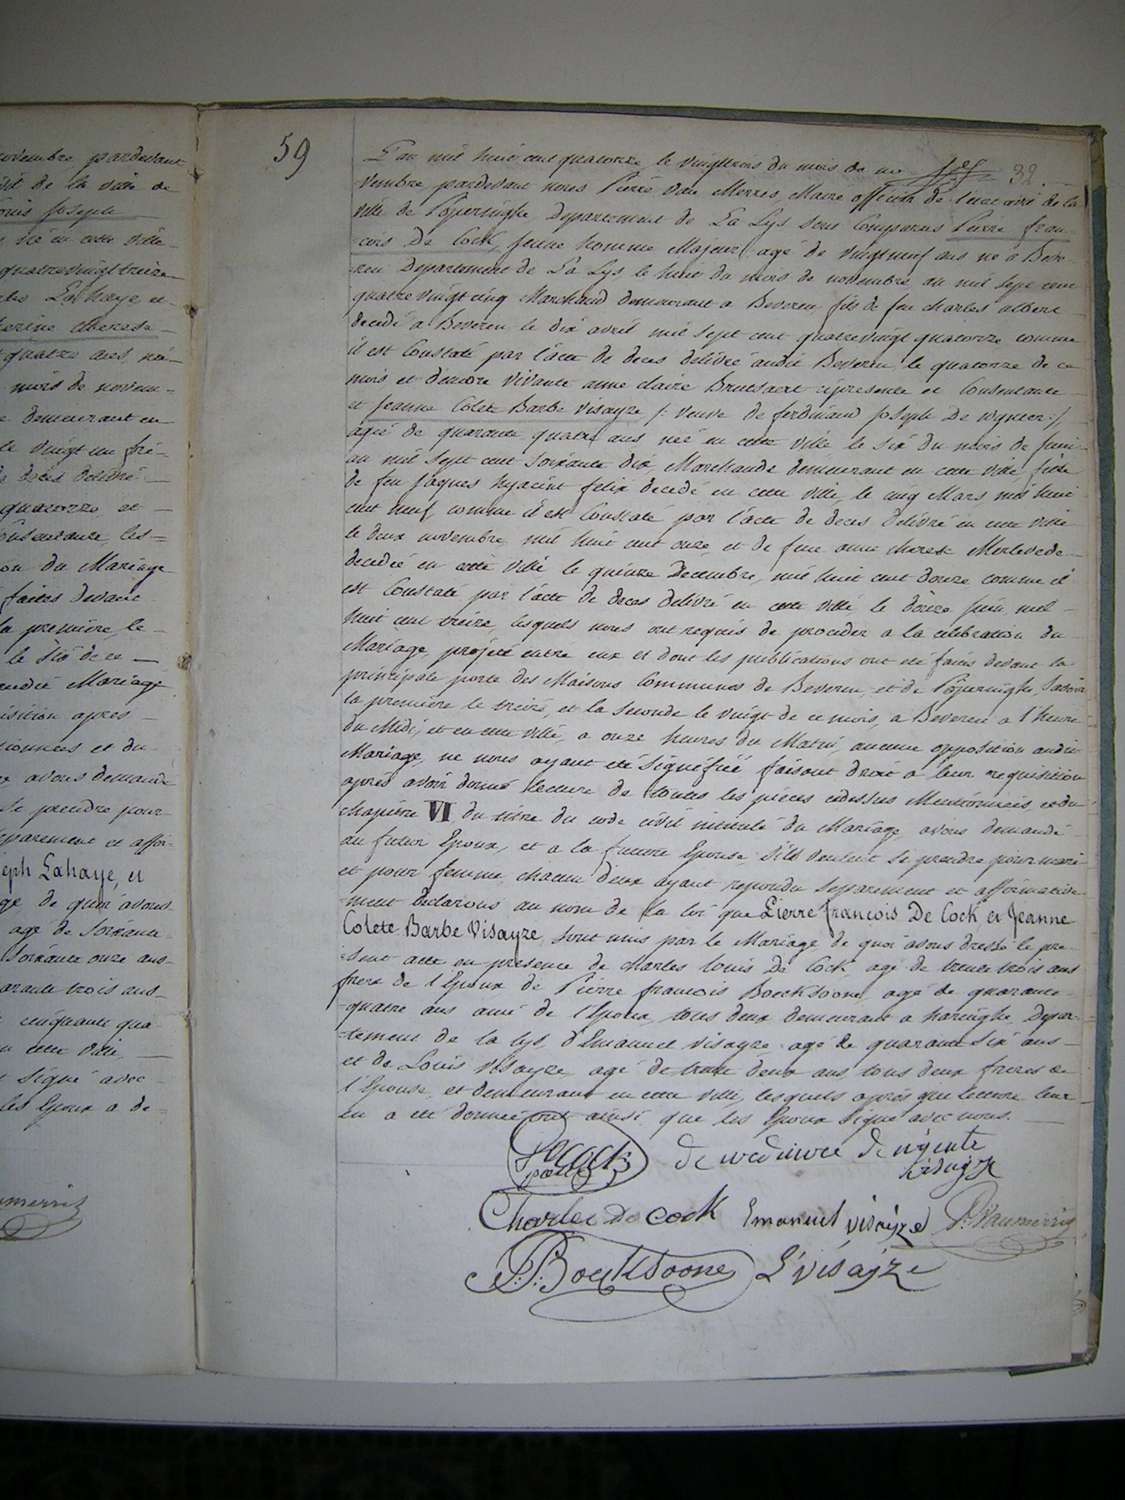 ovembre pardevant
Louis Joseph
né en cette ville
quatre vingt treize
Lahaye et
quatre ans, né
mois de novem-
demeurant en
le vingt un fri-
decès delivré
quatorze et
consentante les-
on du Mariage
faites devant
la première le
le six de ce
audit Mariage
isition après
tionnées et du
avons demandé
se prendre pour
séparement et affir-
eph Lahaye, et
ge de quoi avons
agé de soixante
soixante onze ans
arante trois ans
cinquante qua-
en cette ville
signé avec
les Epoux a de-
59
L'an mil huit cent quatorze le vingttrois du mois de no- 32
vembre pardevant nous Pierre Van Merris, Maire officier de l'état civil de la
ville de Poperinghe Departement de La Lys sont comparus Pierre Fran-
cois De Cock, jeune homme Majeur agé de vingtneuf ans né à Beve-
ren Departement de La Lys le huit du mois de novembre an mil sept cent
quatre vingt cinq Marchand demeurant a Beveren fils de feu charles albert
decedé a Beveren le dix avril mil sept cent quatrevingt quatorze comme
il est Constaté par l'acte de deces delivré audit Beveren le quatorze de ce
mois et d'encore vivante anne claire Brutsaert cipresente et Consentante
et Jeanne Colete Barbe Visayze /: veuve de ferdinand Joseph De wynter :/
agée de quarante quatre ans née en cette ville le six du mois de Juin
an mil sept cent soixante dix, Marchande demeurant en cette ville, fille
de feu Jaques hyacint felix decedé en cette ville le cinq Mars mil huit
cent neuf comme il est Constaté par l'acte de deces delivré en cette ville
le deux novembre mil huit cent onze et de feue anne therese Merlevede
decedée en cette ville le quinze Decembre mil huit cent douze comme il
est Constaté par l'acte de deces delivré en cette ville le douze Juin mil
huit cent treize, lesquels nous ont requis de proceder a la celebration du
Mariage projetté entre eux et dont les publications ont eté faites devant la
principale porte des Maisons Communes de Beveren et de Poperinghe Savoir
la premiere le treize, et la seconde le vingt de ce mois, a Beveren a l'heure
du Midi, et en cette ville, a onze heures du Matin, aucune opposition audit
Mariage, ne nous ayant eté signifiée faisant droit a leur requisition
après avoir donné lecture de toutes les pièces cidessus Mentionnées et du
chapitre VI du titre du code civil intitulé du Mariage avons demandé
au futur Epoux, et a la future Epouse s'ils veulent se prendre pour mari
et pour femme, chacun deux ayant repondu Separement et affirmative-
ment declarons au nom de la loi que Pierre francois De Cock et Jeanne
Colete Barbe Visayze, sont unis par le Mariage de quoi avons dressé le pre-
sent acte en presence de charles louis De Cock agé de trente trois ans
frere de l'Epoux de Pierre francois Boecksoone agé de quarante
quatre ans ami de l'Epoux, tous deux demeurant a haringhe Depar-
tement de la lys d'Emanuel Visayze agé de quarante six ans
et de Louis Visayze agé de trente deux ans tous deux freres de
l'Epouse, et demeurant en cette ville, lesquels après que lecture leur
en a eté donnée ont ainsi que les Epoux Signé avec nous.
De Cock de weduwee
visayze
Charles De Cock Emanuel visayze P. Vanmerris
P: Boecksoone L: visayze